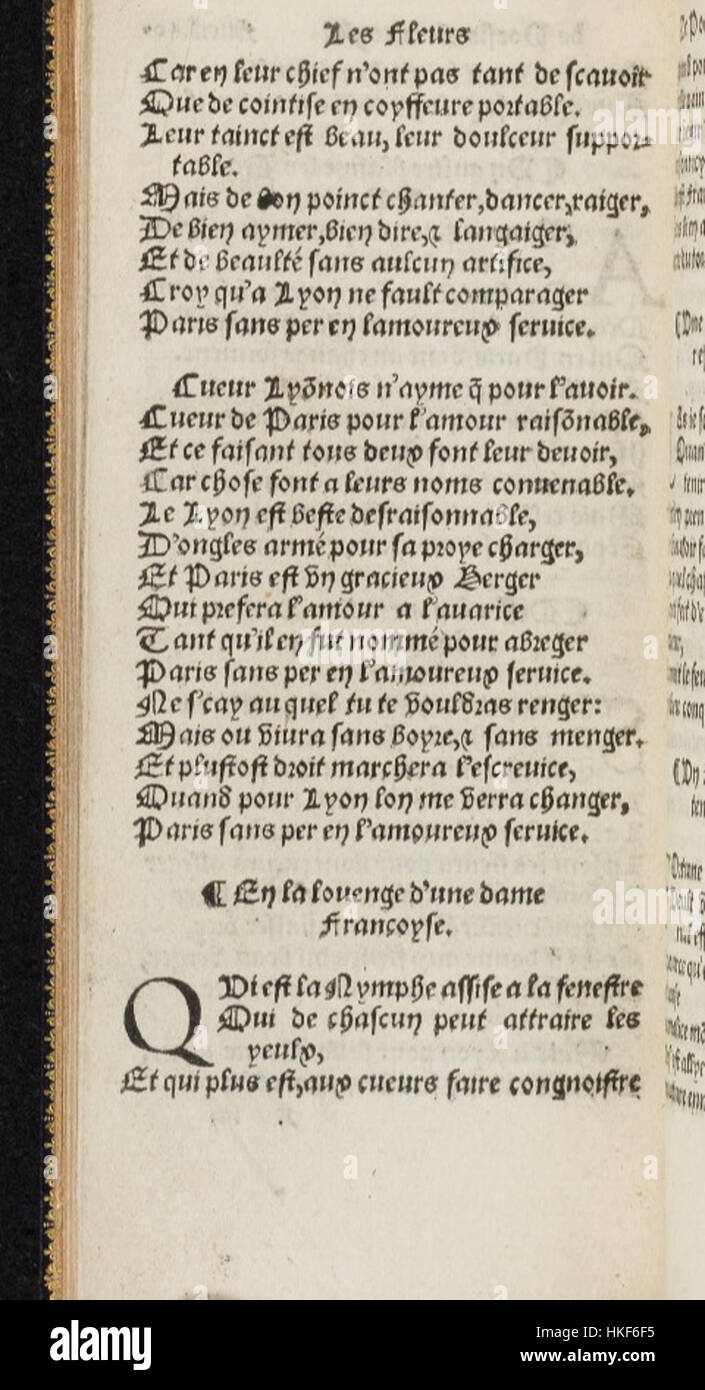 Les Fleurs
Car en leur chief n'ont pas tant de scauoir
Que de cointise en coyffeure portable.
Leur tainct est beau, leur doulceur suppor-
table.
Mais de bon poinct chanter, dancer, raiger,
De bien aymer, bien dire, & langaiger,
Et de beaulté sans aulcun artifice,
Croy qu'a Lyon ne fault comparager
Paris sans per en lamoureux seruice.
Cueur Lyõnois n'ayme q̃ pour l'auoir.
Cueur de Paris pour l'amour raisõnable,
Et ce faisant tous deux font leur deuoir,
Car chose font a leurs noms conuenable.
Le Lyon est beste desraisonnable,
D'ongles armé pour sa proye charger,
Et Paris est vn gracieux Berger
Qui prefera l'amour a l'auarice
Tant qu'il en fut nommé pour abreger
Paris sans per en l'amoureux seruice.
Ne sçay au quel tu te vouldras renger:
Mais ou viura sans boyre, & sans menger.
Et plustost droit marchera l'escreuice,
Quand pour Lyon lon me verra changer,
Paris sans per en l'amoureux seruice.
¶ En la louenge d'une dame
Françoyse.
QVi est la Nymphe assise a la fenestre
Qui de chascun peut attraire les
yeulx,
Et qui plus est, aux cueurs faire congnoistre
alamy
Image ID: HKF6F5
www.alamy.com